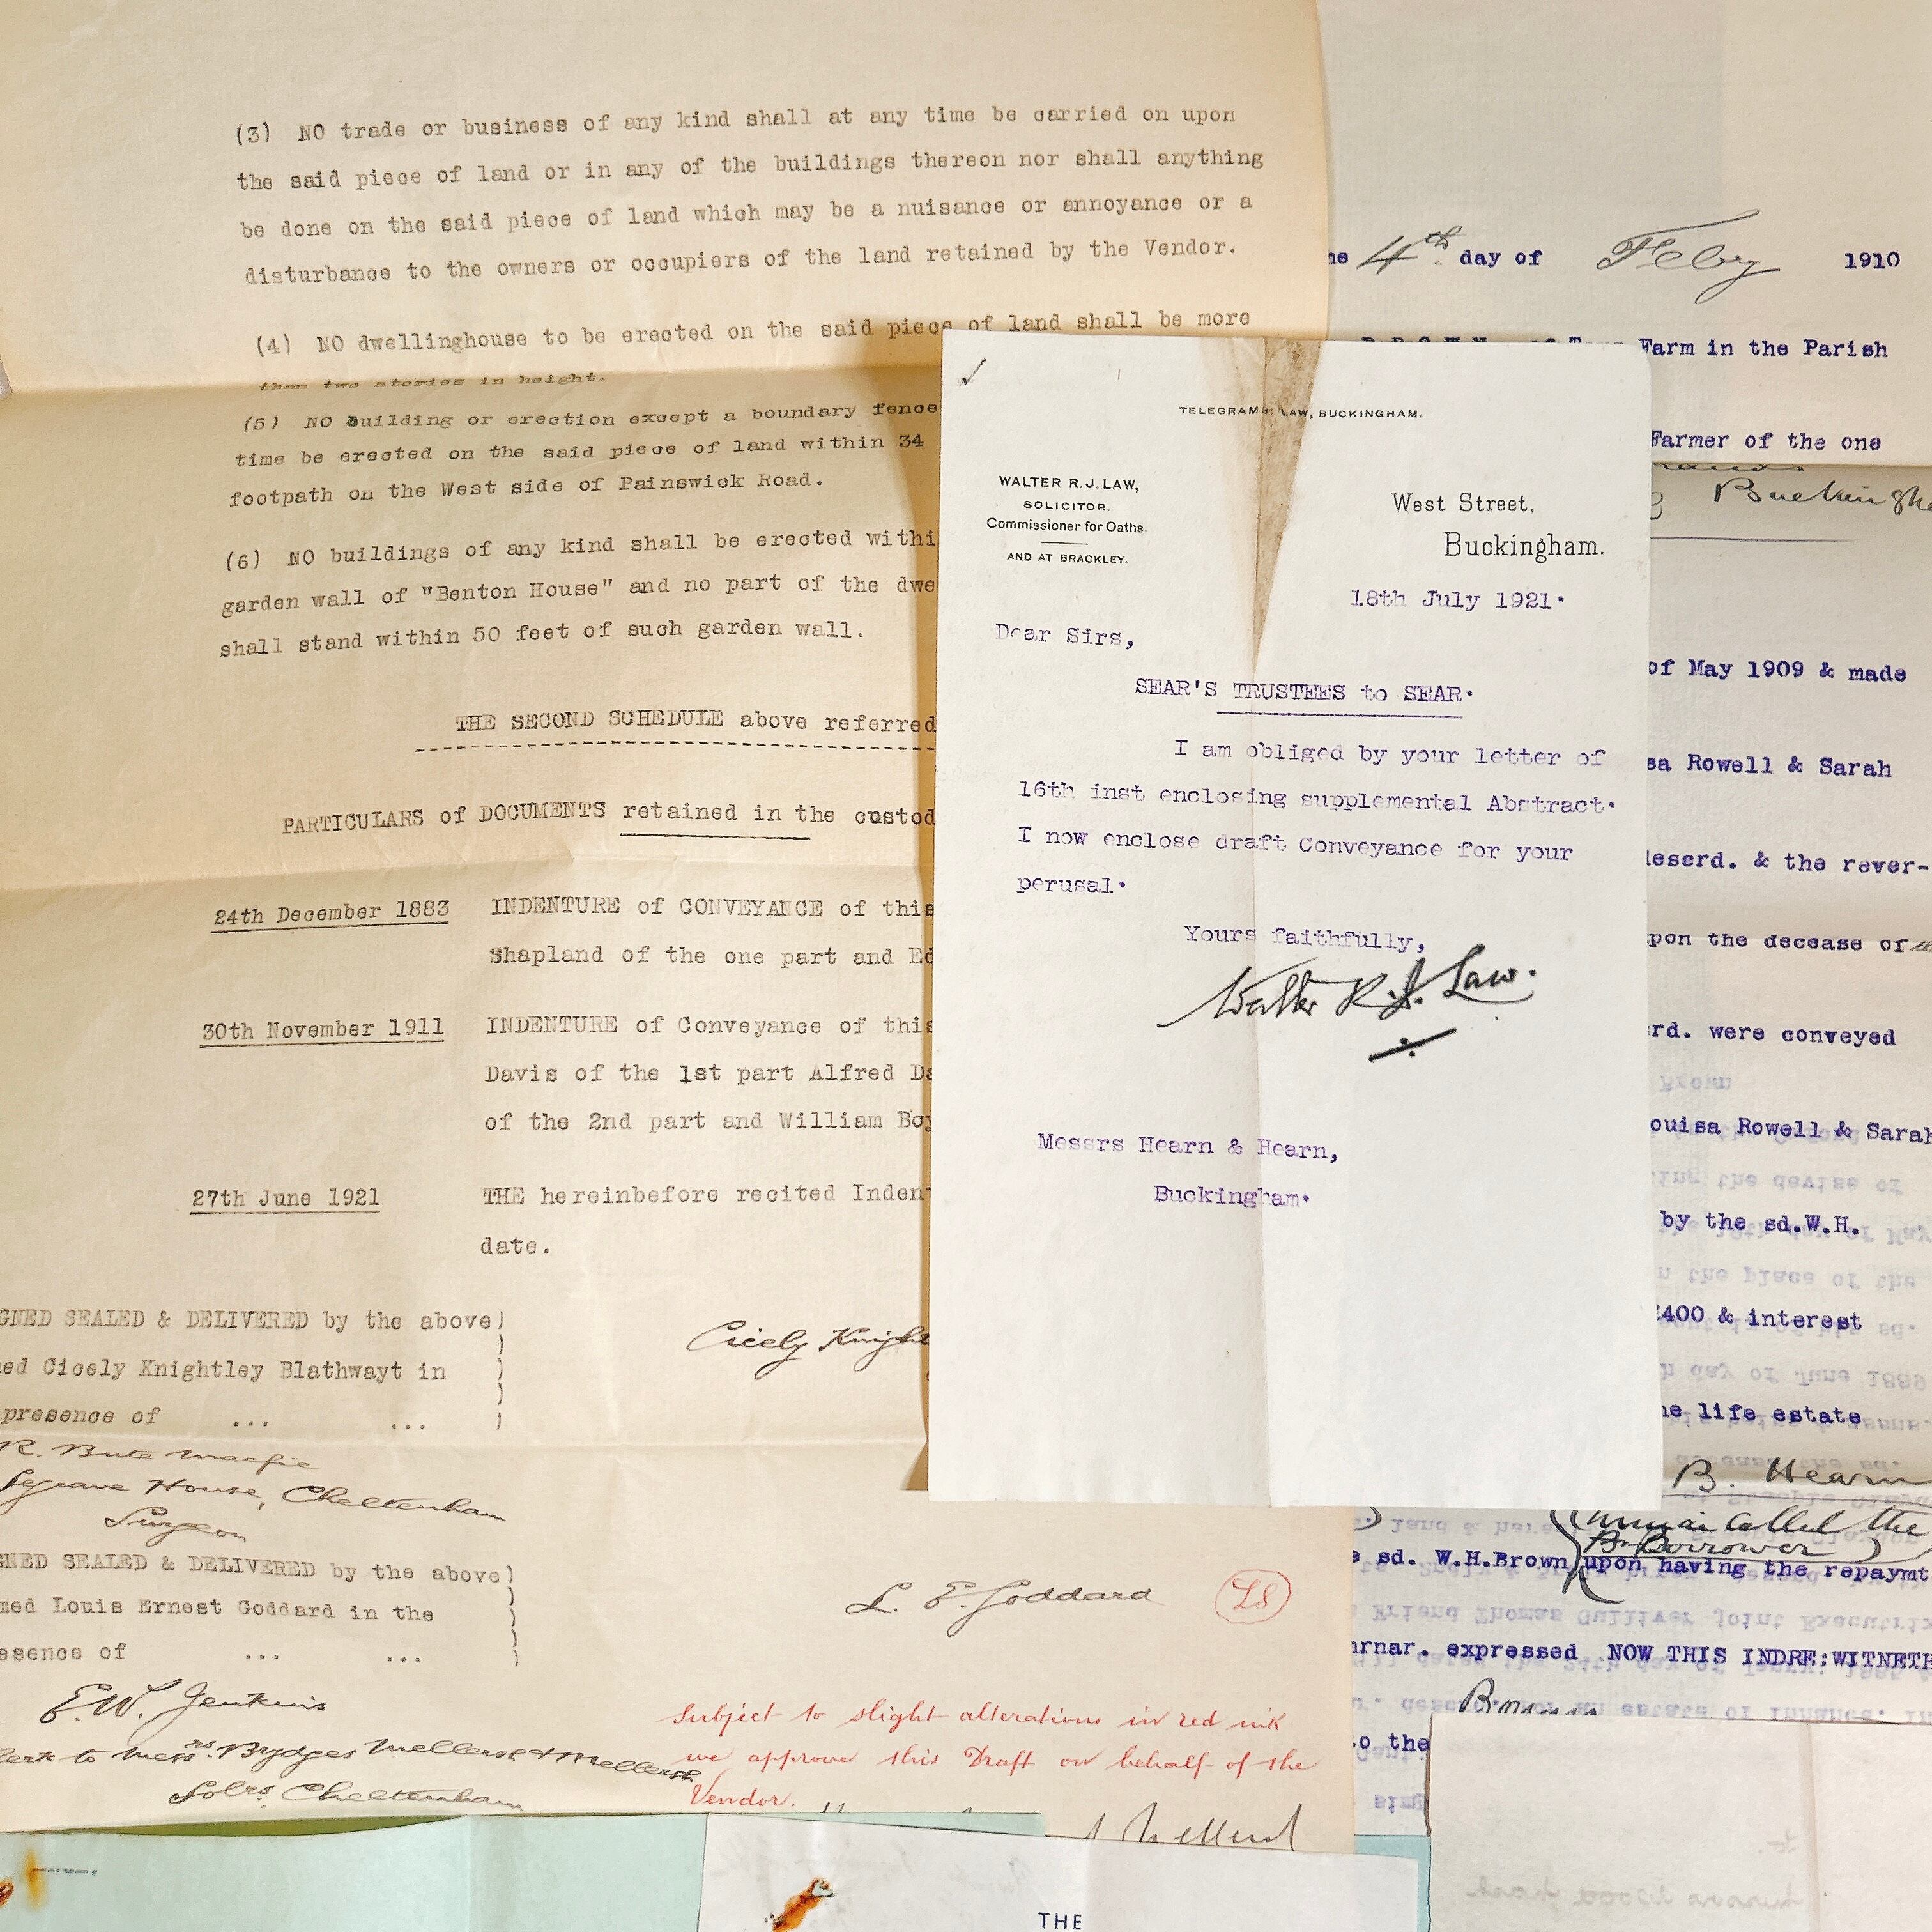 (3) NO trade or business of any kind shall at any time be carried on upon
the said piece of land or in any of the buildings thereon nor shall anything
be done on the said piece of land which may be a nuisance or annoyance or a
disturbance to the owners or occupiers of the land retained by the Vendor.
(4) NO dwellinghouse to be erected on the said piece of land shall be more
than two stories in height.
(5) NO building or erection except a boundary fence
time be erected on the said piece of land within 34
footpath on the West side of Painswick Road.
(6) NO buildings of any kind shall be erected withi
garden wall of "Benton House" and no part of the dwe
shall stand within 50 feet of such garden wall.
THE SECOND SCHEDULE above referred
PARTICULARS of DOCUMENTS retained in the custod
24th December 1883 INDENTURE of CONVEYANCE of this
Shapland of the one part and Ed
30th November 1911 INDENTURE of Conveyance of this
Davis of the 1st part Alfred Da
of the 2nd part and William Boy
27th June 1921 THE hereinbefore recited Inden
date.
GNED SEALED & DELIVERED by the above)
ed Cicely Knightley Blathwayt in
presence of ... ...
Cicely Knight
R. Bute Macfie
Segrave House, Cheltenham
Surgeon
GNED SEALED & DELIVERED by the above)
med Louis Ernest Goddard in the
esence of ... ...
L. E. Goddard
LS
E.W. Jenkins
lerk to Messrs. Brydges Mellersh & Mellersh
Solrs. Cheltenham
Subject to slight alterations in red ink
we approve this Draft on behalf of the
Vendor.
TELEGRAMS: LAW, BUCKINGHAM.
WALTER R. J. LAW,
SOLICITOR.
Commissioner for Oaths.
AND AT BRACKLEY.
West Street,
Buckingham.
18th July 1921.
Dear Sirs,
SEAR'S TRUSTEES to SEAR.
I am obliged by your letter of
16th inst enclosing supplemental Abstract.
I now enclose draft Conveyance for your
perusal.
Yours faithfully,
Walter R. J. Law.
Messrs Hearn & Hearn,
Buckingham.
he 4th day of Feby 1910
BROWN of Town Farm in the Parish
Farmer of the one
Buckingha
of May 1909 & made
sa Rowell & Sarah
descrd. & the rever-
pon the decease of
rd. were conveyed
ouisa Rowell & Sarah
by the sd.W.H.
£400 & interest
he life estate
B. Hearn
called the
Borrower)
e sd. W.H.Brown upon having the repaymt
urnar. expressed NOW THIS INDRE:WITNETH
to the
THE